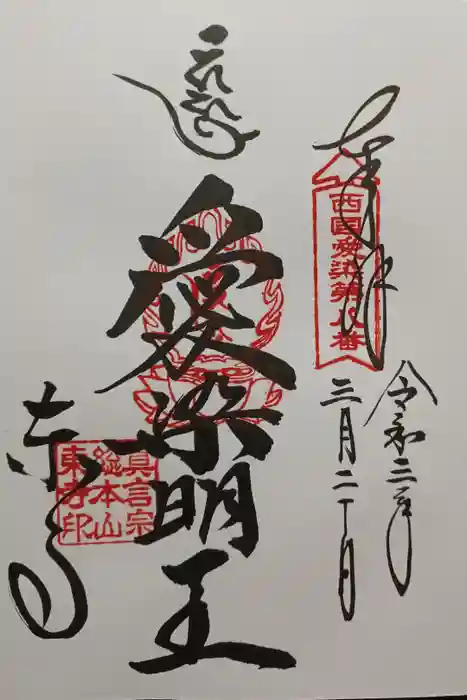 奉拝
西国愛染第八番
令和三年
三月二十日
愛染明王
東寺
真言宗
総本山
東寺印